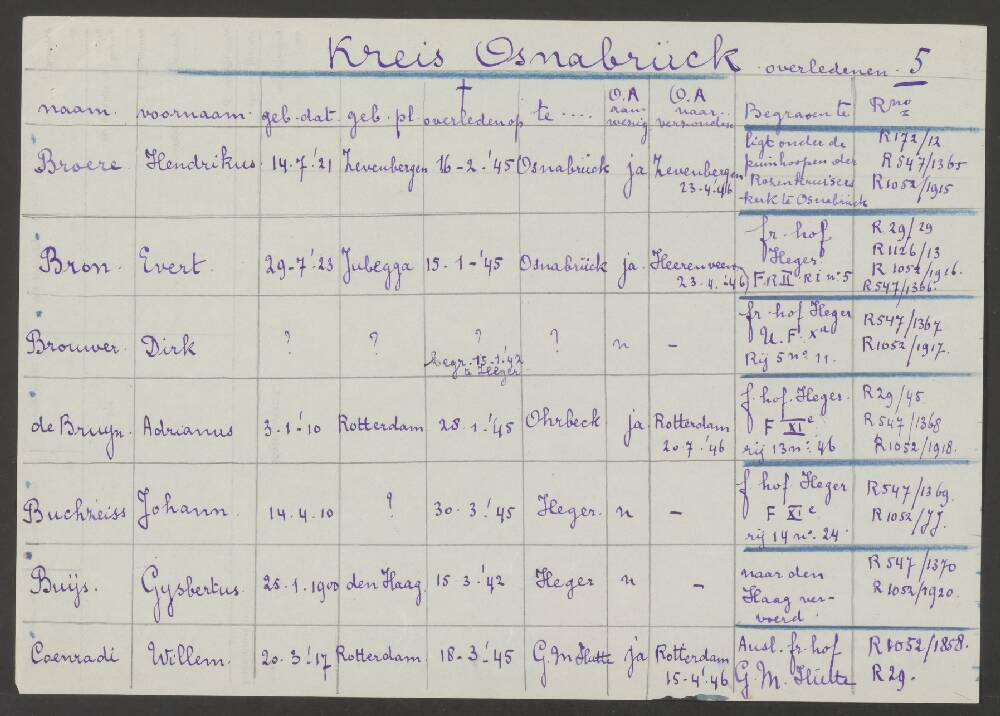 Kreis Osnabrück overledenen. 5
naam. voornaam. geb. dat. geb. pl. † overleden op te .... O.A aan-wezig O.A naar verzonden Begraven te R no
Broere Hendrikus 14-7-'21 Zevenbergen 16-2-'45 Osnabrück ja Zevenbergen 23-4-'46 ligt onder de puinhoopen der Rozenkruisers kerk te Osnabrück R172/12 R547/1365 R1052/1915
Bron. Evert. 29-7-'23 Jubegga 15-1-'45 Osnabrück ja. Heerenveen 23.4.-46 fr. hof Heger F R II Ri no 5 R29/29 R1126/13 R1052/1916. R547/1366.
Brouwer. Dirk ? ? ? begr. 15-1-'42 te Heeger ? n - fr. hof Heger U. F. Xa Rij 5 no 11. R547/1367 R1052/1917.
de Bruyn. Adrianus 3-1-10 Rotterdam 28.1.'45 Ohrbeck ja. Rotterdam 20.7.'46 f. hof. Heger. F XIe rij 13 no. 46 R29/45 R547/1368 R1052/1918.
Buchzeiss Johann. 14.4.10 ? 30.3.'45 Heger. n - f. hof Heger F XIe rij 14 no. 24 R547/1369. R1052/JJ.
Buijs. Gysbertus. 25.1.1900 den Haag. 15.3-'42 Heger n - naar den Haag ver-voerd. R547/1370 R1052/1920.
Coenradi Willem. 20-3-'17 Rotterdam 18-3-'45 G.M Hütte ja Rotterdam 15-4-'46 Ausl. fr. hof G.M. Hütte R1052/1858. R29.